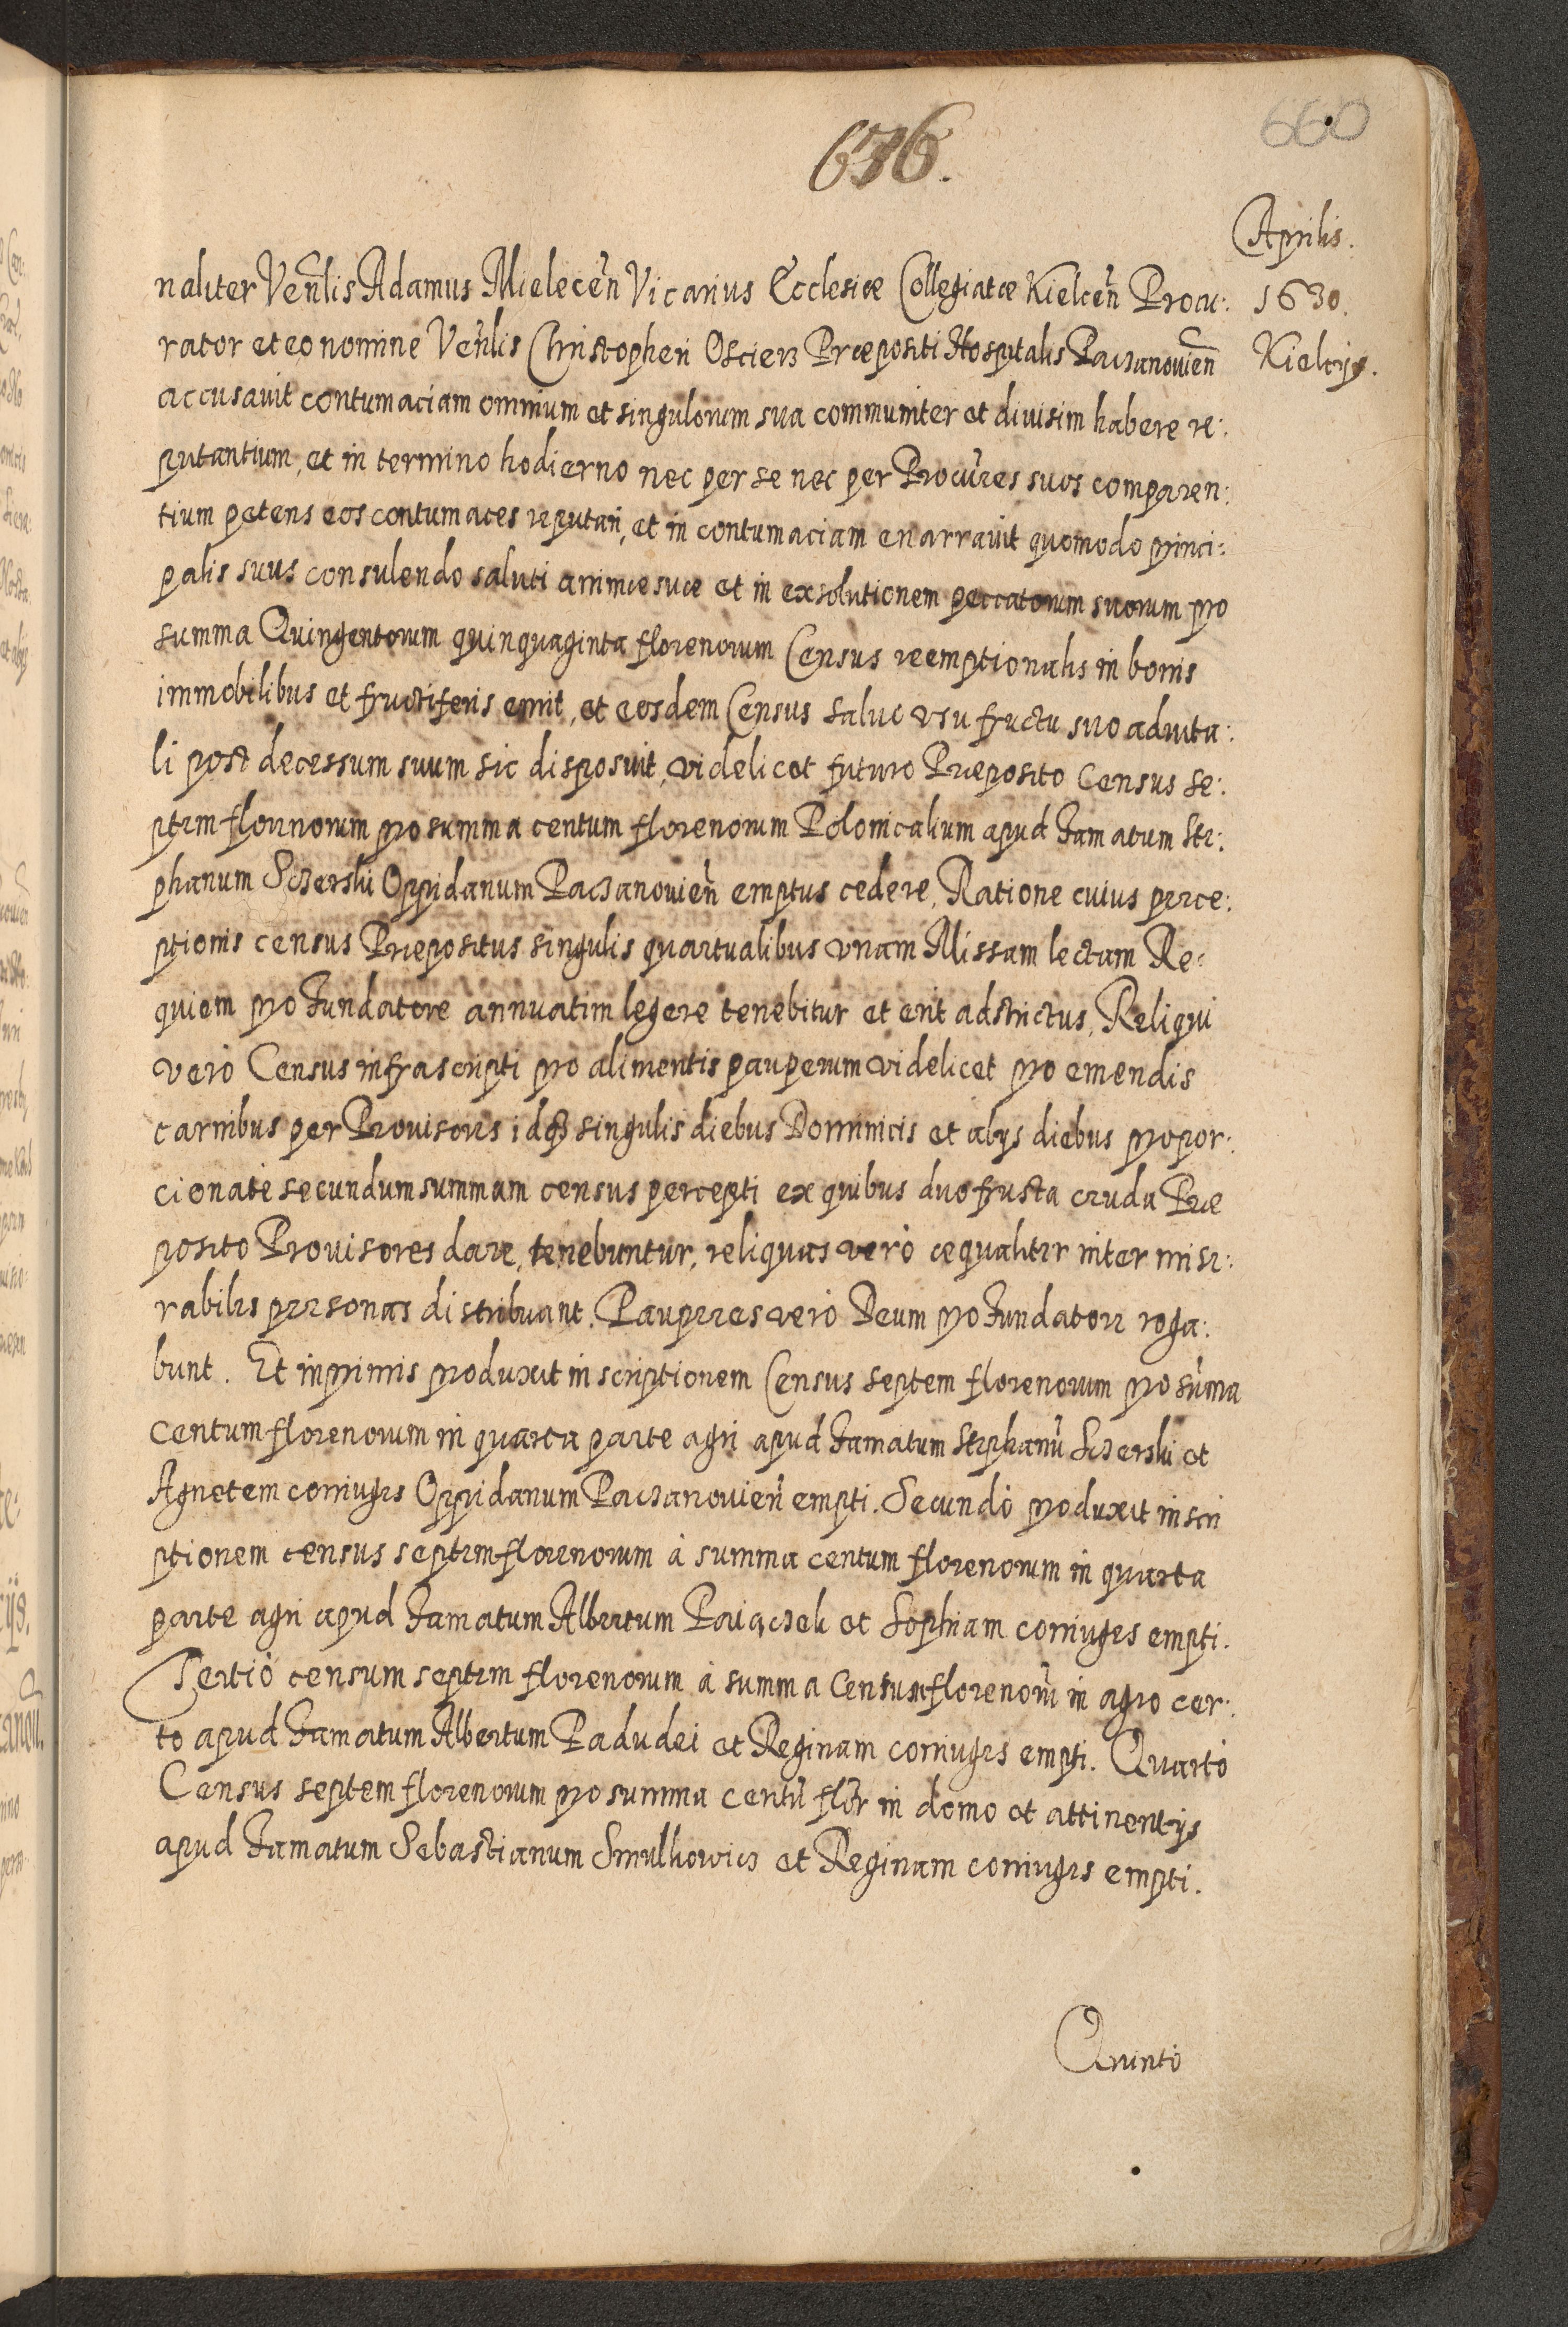 636.
660
Aprilis.
1630.
Kielcijs.
naliter Venlis Adamus Mielecen̄ Vicarius Ecclesiæ Collegiatæ Kielcen̄ Procu:
rator et eo nomine Venlis Christopheri Oscierz Præpositi Hospitalis Paczanouien̄
accusauit contumaciam omnium et singulorum sua communiter et diuisim habere re:
putantium, et in termino hodierno nec per se nec per Procures suos comparen:
tium petens eos contumaces reputari, et in contumaciam enarrauit quomodo princi:
palis suus consulendo saluti animæ suæ et in exsolutionem peccatorum suorum pro
summa Quingentorum quinquaginta florenorum Census reemptionalis in bonis
immobilibus et fructiferis emit, et eosdem Census saluo vsu fructu suo aduita:
li post decessum suum sic disposuit, videlicet futuro Præposito Census se:
ptem florenorum pro summa centum florenorum Polonicalium apud famatum Ste:
phanum Sczerski Oppidanum Paczanouien̄ emptus cedere, Ratione cuius perce:
ptionis census Præpositus singulis quartualibus vnam Missam lectam Re:
quiem pro Fundatore annuatim legere tenebitur et erit adstrictus, Reliqui
verò Census infrascripti pro alimentis pauperum videlicet pro emendis
carnibus per Prouisores idq3 singulis diebus Dominicis et alys diebus propor:
cionatè secundum summam census percepti ex quibus duo frusta cruda Præ
posito Prouisores dare, tenebuntur, reliquas verò æqualiter inter mise:
rabiles personas distribuant. Pauperes verò Deum pro Fundatore roga:
bunt. Et inprimis produxit inscriptionem Census septem florenorum pro sum̄a
centum florenorum in quarta parte agri apud famatum Stephanū Sczerski et
Agnetem coniuges Oppidanum Paczanouien̄ empti. Secundò produxit inscri
ptionem census septem florenorum à summa centum florenorum in quarta
parte agri apud famatum Albertum Paiączek et Sophiam coniuges empti.
Tertiò censum septem florenorum à summa Centum florenorū in agro cer:
to apud famatum Albertum Padudei et Reginam coniuges empti. Quartò
Census septem florenorum pro summa centū flor̄ in domo et attinentijs
apud famatum Sebastianum Smulkowicz et Reginam coniuges empti.
Quintò